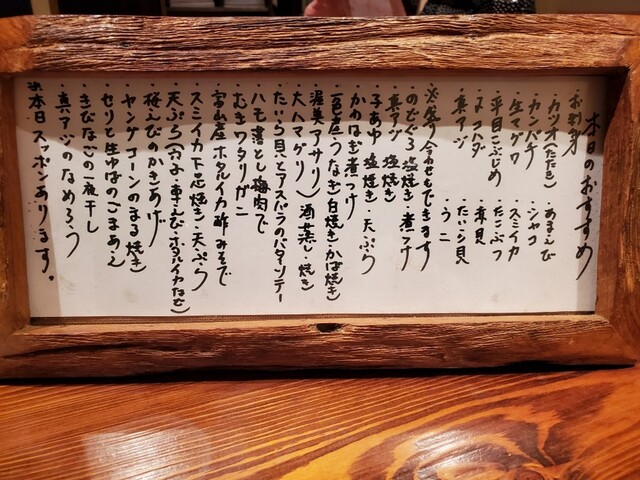 本日のおすすめ
お刺身
・カツオ(たたき)・あまえび
・カンパチ ・シャコ
・生マグロ ・スミイカ
・平目こぶじめ ・たこぶつ
・コハダ ・赤貝
・真アジ ・たいら貝
・うに
※盛り合わせもできます
・のどぐろ 塩焼き・煮つけ
・真アジ 塩焼き
・子あゆ 塩焼き・天ぷら
・かわはぎ煮つけ
・うなぎ(白焼き・かば焼き)
・渥美アサリ)酒蒸し・焼き
・大ハマグリ)
・たいら貝とアスパラのバターソテー
・ハモ落とし梅肉で
・むきワタリガニ
・富山産ホタルイカ酢みそで
・スミイカ下足焼き・天ぷら
・天ぷら(穴子・車えび・ホタルイカなど)
・桜えびのかきあげ
・ヤングコーンのまる焼き
・セリと生ゆばのごまあえ
・きびなごの一夜干し
・真アジのなめろう
※本日スッポンあります。